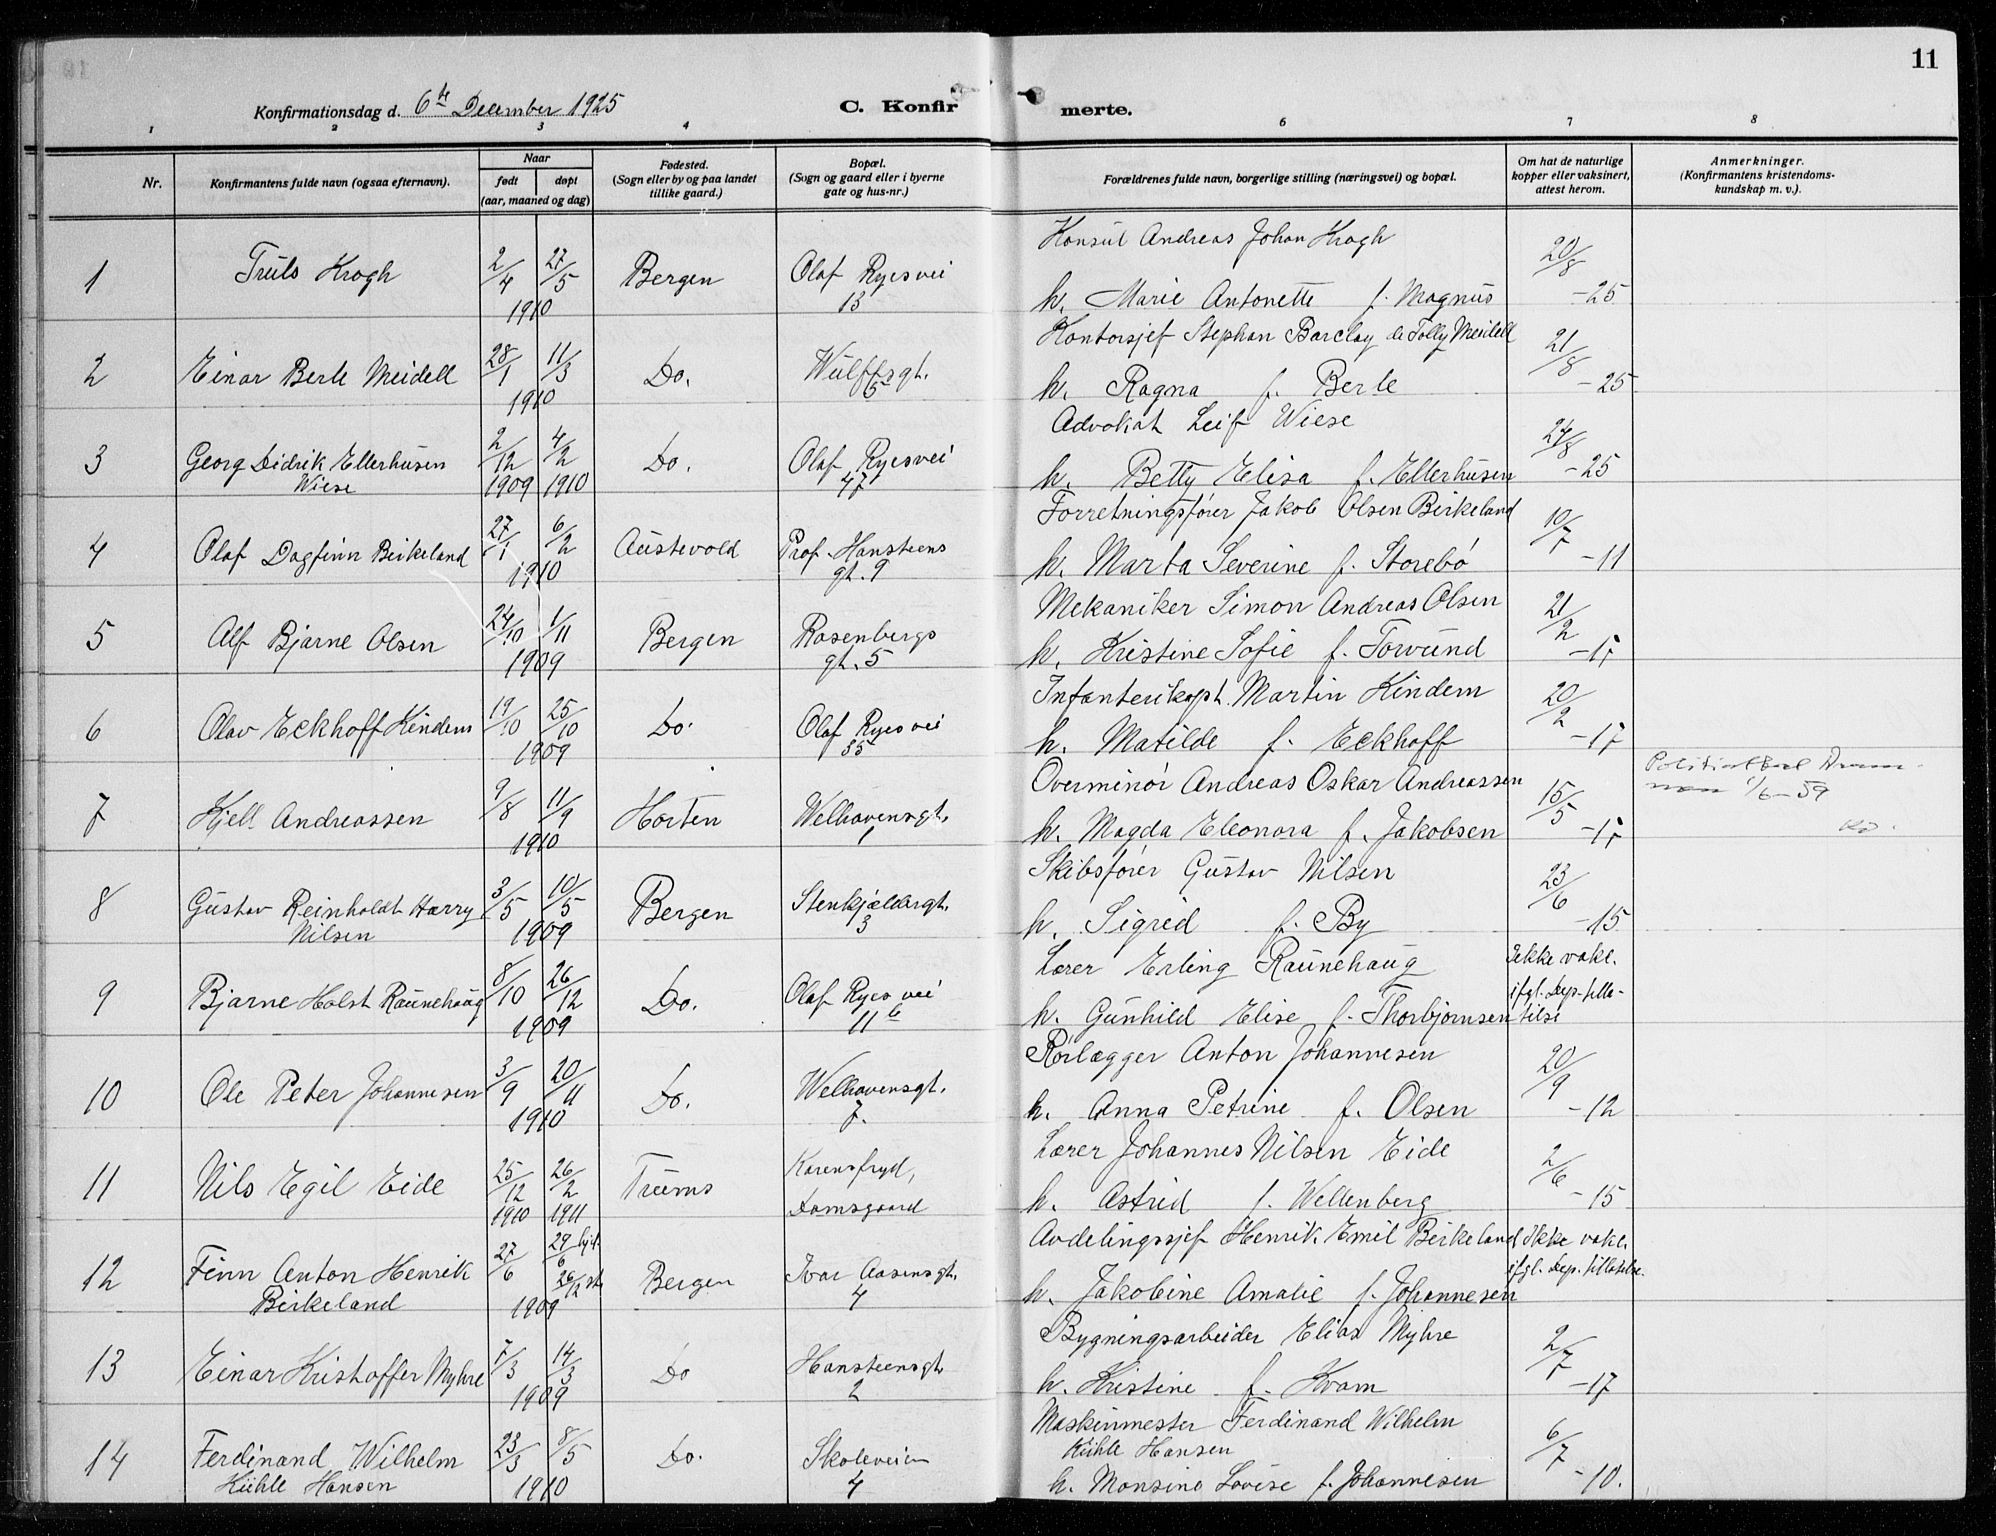 11
Konfirmationsdag d. 6te December 1925
C. Konfirmerte.
1 2 3 4 5 6 7 8
Nr.
Konfirmantens fulde navn (ogsaa efternavn).
Naar
født
døpt
(aar, maaned og dag)
Fødested.
(Sogn eller by og paa landet
tillike gaard.)
Bopæl.
(Sogn og gaard eller i byerne
gate og hus-nr.)
Forældrenes fulde navn, borgerlige stilling (næringsvei) og bopæl.
Om hat de naturlige
kopper eller vaksinert,
attest herom.
Anmerkninger.
(Konfirmantens kristendoms-
kundskap m. v.).
1 Truls Krogh 2/4 27/5 1910 Bergen Olaf Ryesvei 13
Konsul Andreas Johan Krogh 20/8
h. Marie Antonette f. Magnus -25
2 Einar Berle Meidell 28/1 11/3 1910 Do. Wulffsgt. 5
Kontorsjef Stephan Barclay de Tolly Meidell 21/8
h. Ragna f. Berle -25
3 Georg Didrik Ellerhusen Wiese 2/12 1909 4/2 1910 Do. Olaf Ryesvei 47
Advokat Leif Wiese 24/8
h. Betty Elisa f. Ellerhusen -25
4 Olaf Dagfinn Birkeland 27/1 6/2 1910 Austevold Prof. Hansteens gt. 9
Forretningsfører Jakob Olsen Birkeland 10/7
h. Marta Severine f. Storebø -11
5 Alf Bjarne Olsen 24/10 1/11 1909 Bergen Rosenbergs gt. 5
Mekaniker Simon Andreas Olsen 21/2
h. Kristine Sofie f. Torvund -17
6 Olav Eckhoff Kindem 19/10 25/10 1909 Do. Olaf Ryes vei 35
Infanterikapt. Martin Kindem 20/2
h. Matilde f. Eckhoff -17
7 Kjell Andreassen 9/8 11/9 1910 Horten Welhavensgt. 1
Overminør Andreas Oskar Andreassen 15/5
h. Magda Eleonora f. Jakobsen -17
1/6-59
8 Gustav Reinholdt Harry Nilsen 3/5 10/5 1909 Bergen Stenkjeldergt. 3
Skibsfører Gustav Nilsen 23/6
h. Sigrid f. By -15
9 Bjarne Holst Raunehaug 8/10 26/12 1909 Do. Olaf Ryes vei 11 b
Lærer Erling Raunehaug Ikke vakc.
h. Gunhild Elise f. Thorbjørnsen ifgl. Dep. tilla-
telse
10 Ole Peter Johannesen 3/9 20/11 1910 Do. Welhavensgt. 7.
Rørlægger Anton Johannesen 20/9
h. Anna Petrine f. Olsen -12
11 Nils Egil Eide 25/12 1910 26/2 1911 Trums Karensfryd, Damsgaard
Lærer Johannes Nilsen Eide 2/6
h. Astrid f. Wellenberg -15
12 Finn Anton Henrik Birkeland 27/6 29/6 hjd. 26/12 st. 1909 Bergen Ivar Aasensgt. 4
Avdelingssjef Henrik Emil Birkeland Ikke vakc.
h. Jakobine Amalie f. Johannesen ifgl. Dep. tillatelse.
13 Einar Kristoffer Myhre 7/3 14/3 1909 Do Hansteensgt. 2
Bygningsarbeider Elias Myhre 2/7
h. Kristine f. Kvam -17
14 Ferdinand Wilhelm Kühle Hansen 23/3 8/5 1910 Do. Skoleveien 4
Maskinmester Ferdinand Wilhelm
Kühle Hansen 6/7
h. Monsine Lovise f. Johannesen -10.